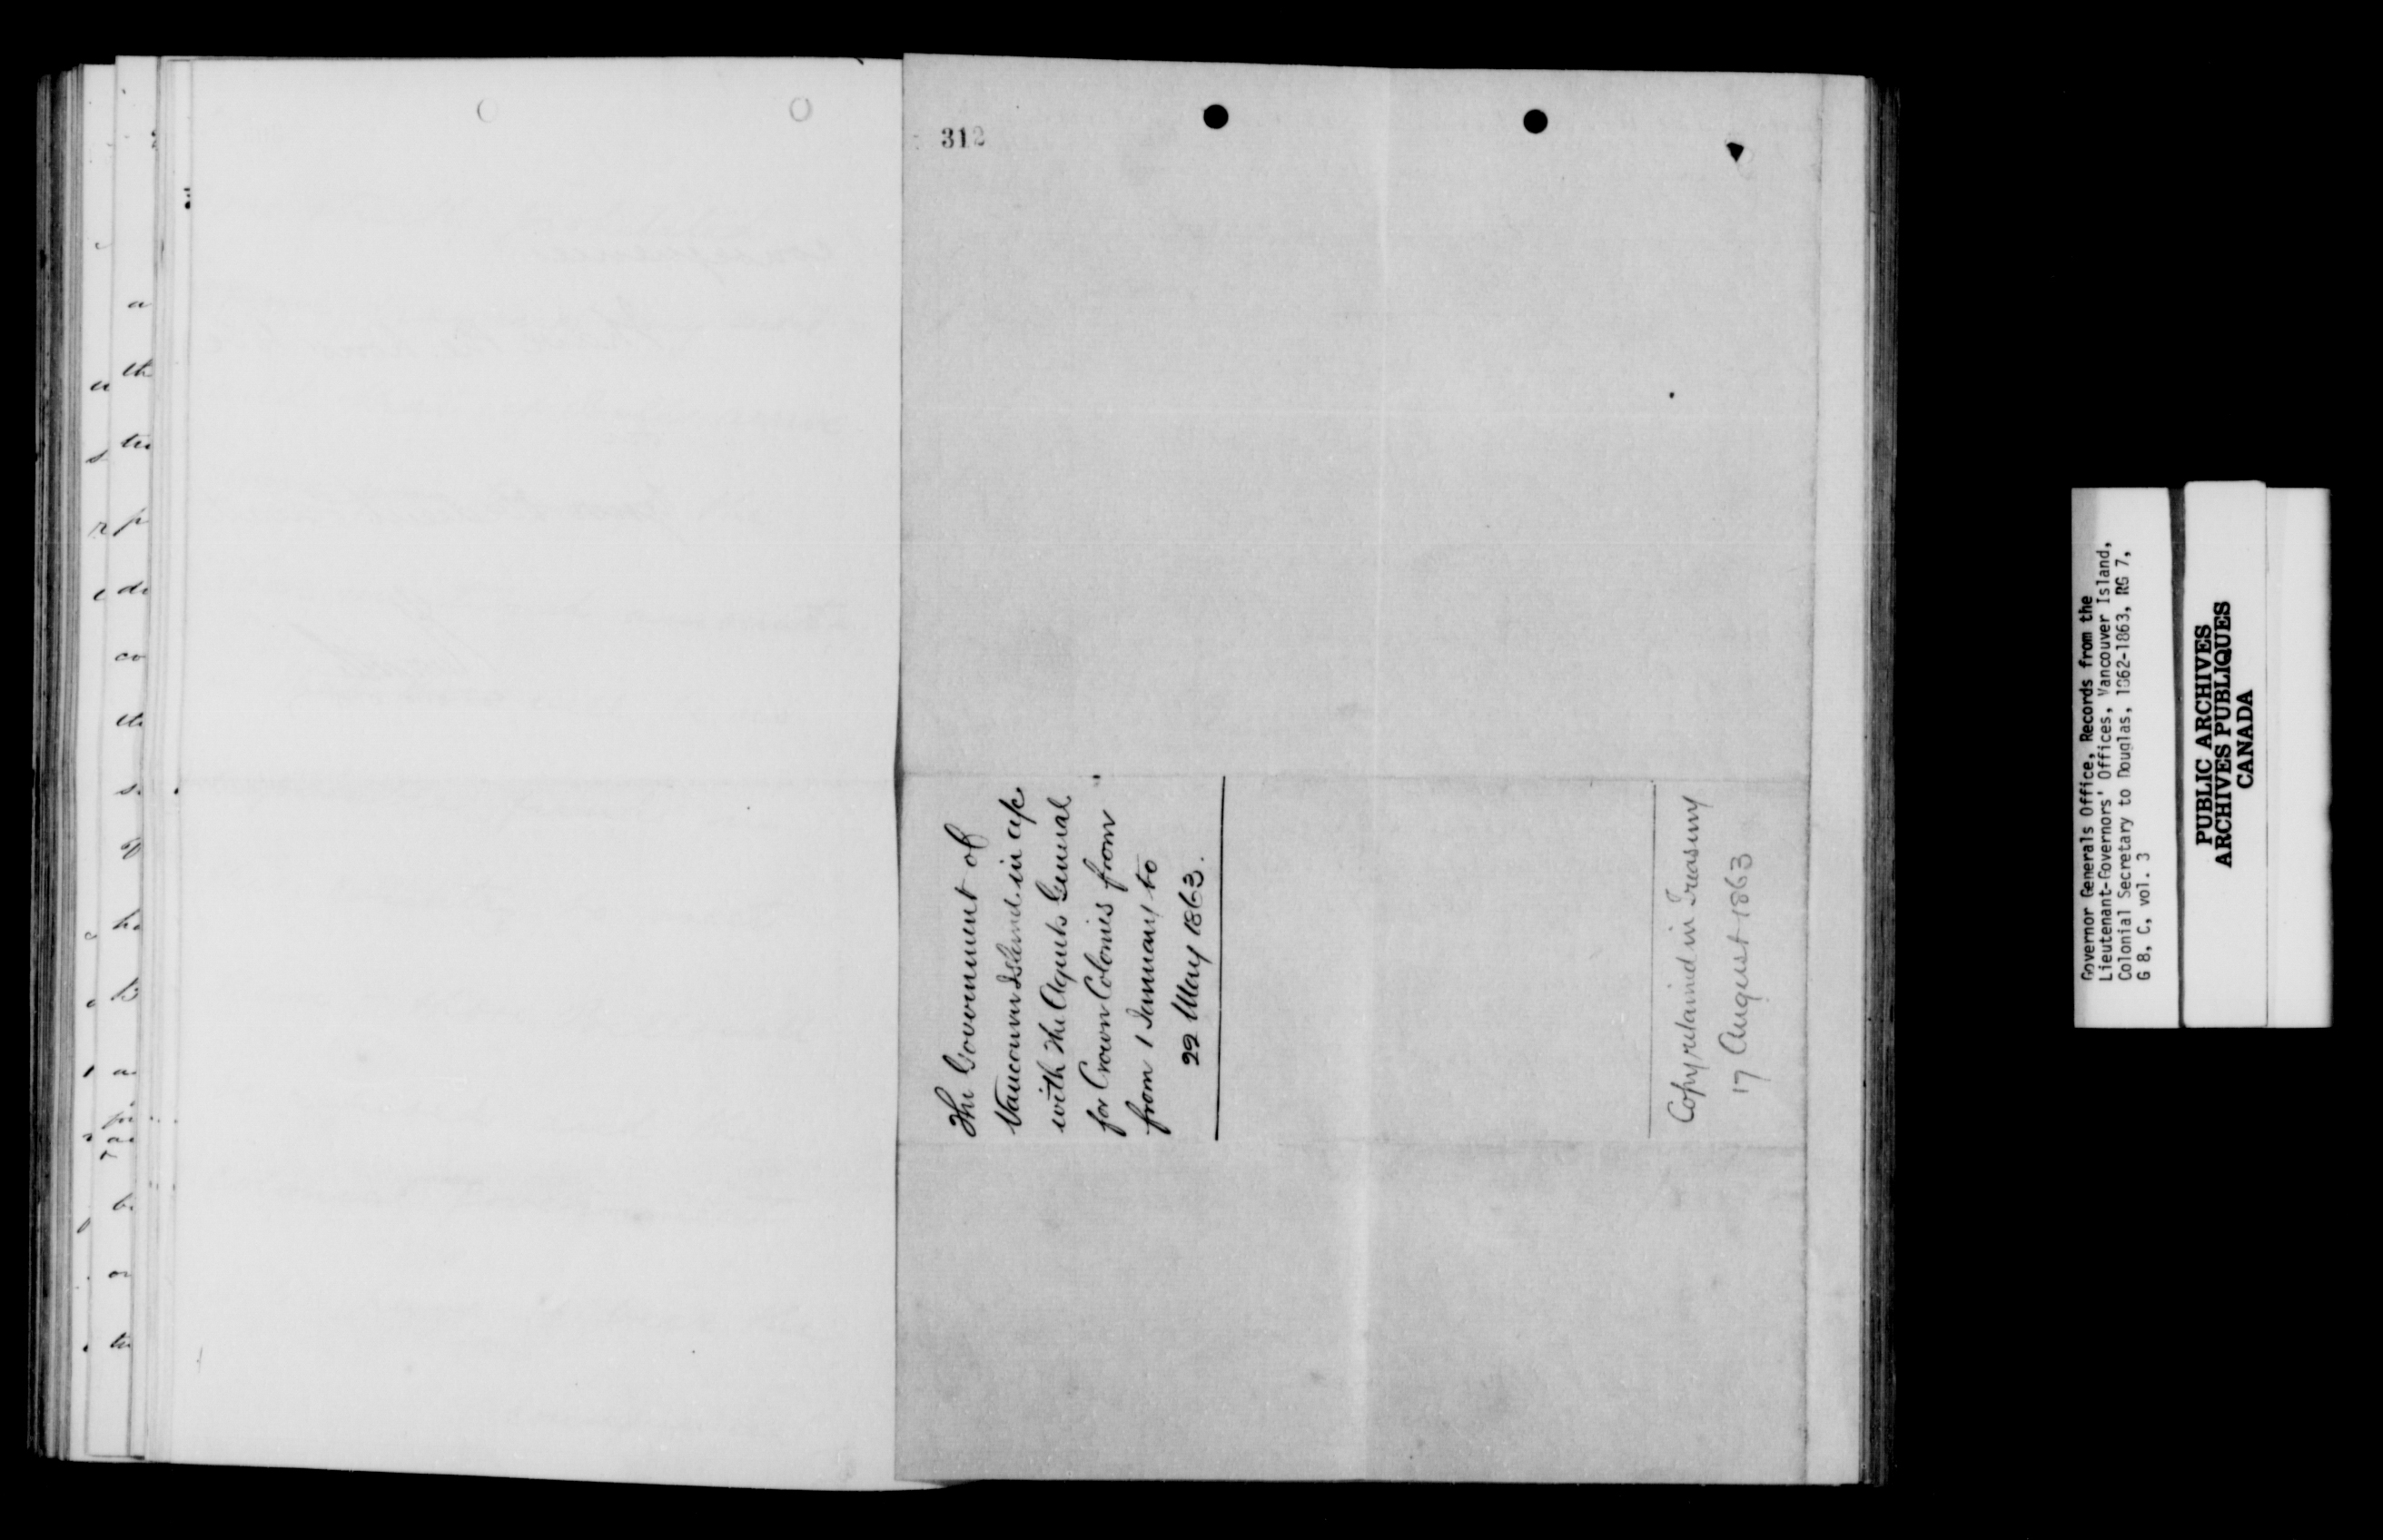 312
The Government of
Vancouver Island in a/c
with the Agents General
for Crown Colonies from
from 1 January to
22 May 1863.
Copy retained in Treasury
17 August 1863
Governor Generals Office, Records from the
Lieutenant-Governors' Offices, Vancouver Island,
Colonial Secretary to Douglas, 1862-1863, RG 7,
G 8, C, vol. 3
PUBLIC ARCHIVES
ARCHIVES PUBLIQUES
CANADA